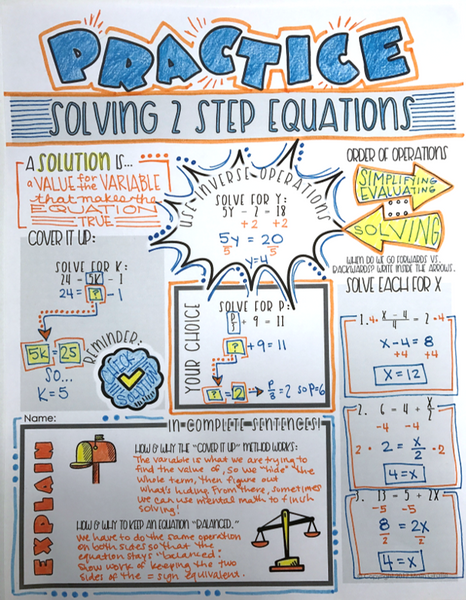 PRACTICE
SOLVING 2 STEP EQUATIONS
A SOLUTION IS...
a VALUE for the VARIABLE
that makes the
EQUATION
TRUE
COVER IT UP:
SOLVE FOR K:
24 = 5K - 1
24 = ? - 1
5K = 25
SO...
K = 5
REMINDER:
CHECK
SOLUTION
USE INVERSE OPERATIONS
SOLVE FOR Y:
5Y - 2 = 18
+2 +2
5y = 20
5 5
y = 4
YOUR CHOICE
SOLVE FOR P:
P/3 + 9 = 11
? + 9 = 11
? = 2 → P/3 = 2 so P=6
ORDER OF OPERATIONS
SIMPLIFYING
EVALUATING
SOLVING
WHEN DO WE GO FORWARDS VS.
BACKWARDS? WRITE INSIDE THE ARROWS.
SOLVE EACH FOR X
1. 4 · x - 4/4 = 2 · 4
x - 4 = 8
+4 +4
x = 12
2. 6 = 4 + x/2
-4 -4
2 · 2 = x/2 · 2
4 = x
3. 13 = 5 + 2X
-5 -5
8 = 2X
2 2
4 = x
Name:
IN COMPLETE SENTENCES!
EXPLAIN
HOW & WHY THE "COVER IT UP" METHOD WORKS:
The variable is what we are trying to
find the value of, so we "hide" the
whole term, then figure out
what's hiding. From there, sometimes
we can use mental math to finish
solving!
HOW & WHY TO KEEP AN EQUATION "BALANCED."
We have to do the same operation
on both sides so that the
equation stays "balanced."
Show work of keeping the two
sides of the = sign equivalent.